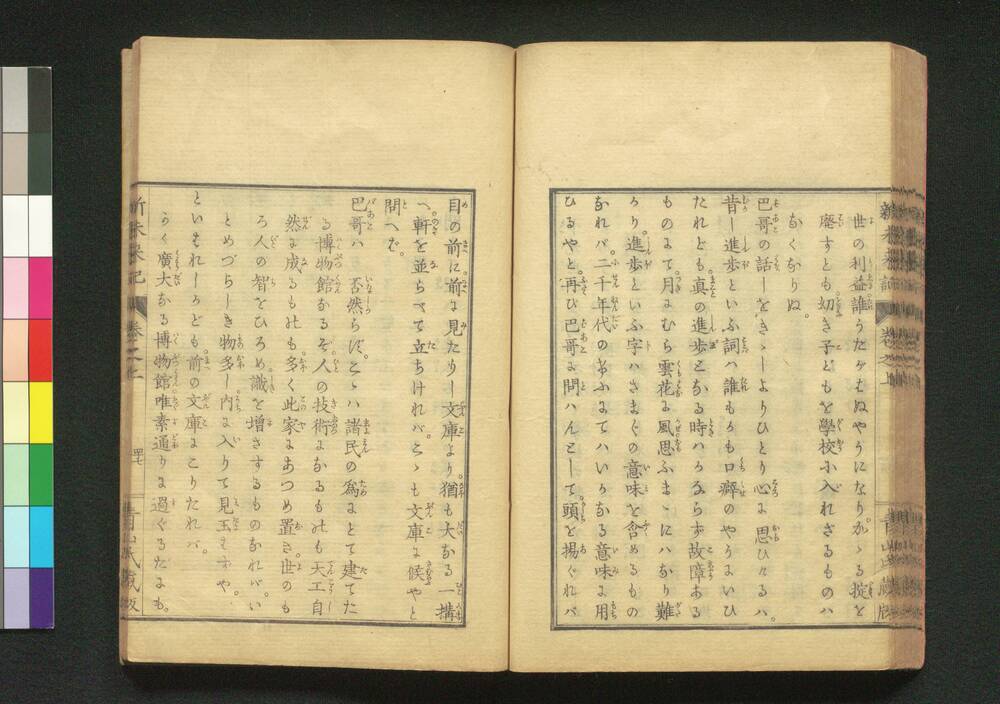 新未来記
卷之上
青山氏蔵版
世の利益誰うたがはぬやうになりか゛ゝる掟を
廃すとも幼き子どもを學校に入れざるものハ
なくなりぬ。
巴哥の話しをきゝしよりひとり心に思ひけるハ。
昔し進歩といふ詞ハ誰もかも口癖のやうにいひ
たれども。真の進歩となる時ハかならず故障ある
ものにて。月にむら雲花に風思ふまゝにハなり難
かり。進歩といふ字ハさま〴〵の意味を含めるもの
なれバ。二千年代の
にてハいかなる意味に用
ひるやと。再び巴哥に問ハんとして。頭を揚ぐれバ
目の前に前に見ためし文庫より猶も大なる一搆
へ。軒を並らべて立ちけれバ。こゝも文庫に候やと
問へば。
巴哥ハ 否然らず。こゝハ諸民の為にとて建てた
る博物館なるぞ。人の技術になるものも天工自
然に成るものも。多く此家にあつめ置き。世のも
ろ人の智をひろめ。識を増さするものなれバ。い
とめづらしき物多し内に入りて見玉はずや。
といはれしかども前の文庫にこりたれバ。
かく廣大なる博物館唯素通りに過ぐるだにも。
新未来記
卷之上
四七
青山氏蔵版